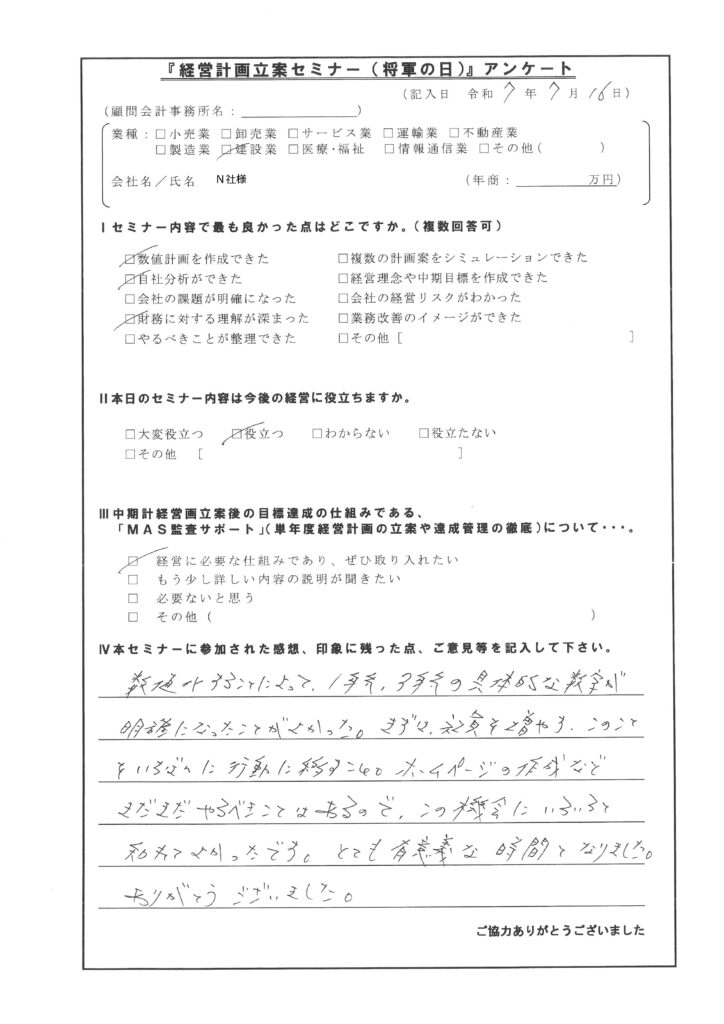 『経営計画立案セミナー(将軍の日)』アンケート
(記入日 令和 7 年 7 月 16 日)
(顧問会計事務所名:　　　　　　)
業種:□小売業 □卸売業 □サービス業 □運輸業 □不動産業
□製造業 ☑建設業 □医療・福祉 □情報通信業 □その他(　　　)
会社名/氏名 N社様 (年商:　　　　　万円)
Ⅰセミナー内容で最も良かった点はどこですか。(複数回答可)
☑数値計画を作成できた □複数の計画案をシミュレーションできた
☑自社分析ができた □経営理念や中期目標を作成できた
□会社の課題が明確になった □会社の経営リスクがわかった
☑財務に対する理解が深まった □業務改善のイメージができた
□やるべきことが整理できた □その他[　　　　　　]
Ⅱ本日のセミナー内容は今後の経営に役立ちますか。
□大変役立つ ☑役立つ □わからない □役立たない
□その他 [　　　　　　]
Ⅲ中期計経営画立案後の目標達成の仕組みである、
「MAS監査サポート」(単年度経営計画の立案や達成管理の徹底)について・・・。
☑ 経営に必要な仕組みであり、ぜひ取り入れたい
□ もう少し詳しい内容の説明が聞きたい
□ 必要ないと思う
□ その他(　　　　　　)
Ⅳ本セミナーに参加された感想、印象に残った点、ご意見等を記入して下さい。
数値化することによって、1年先、3年先の具体的な数字が
明確になったことがよかった。まずは、社員を増やす、このこと
をいちばんに行動に移すこと。ホームページの作成など
まだまだやるべきことはあるので、この機会にいろいろと
知れてよかったです。とても有意義な時間となりました。
ありがとうございました。
ご協力ありがとうございました